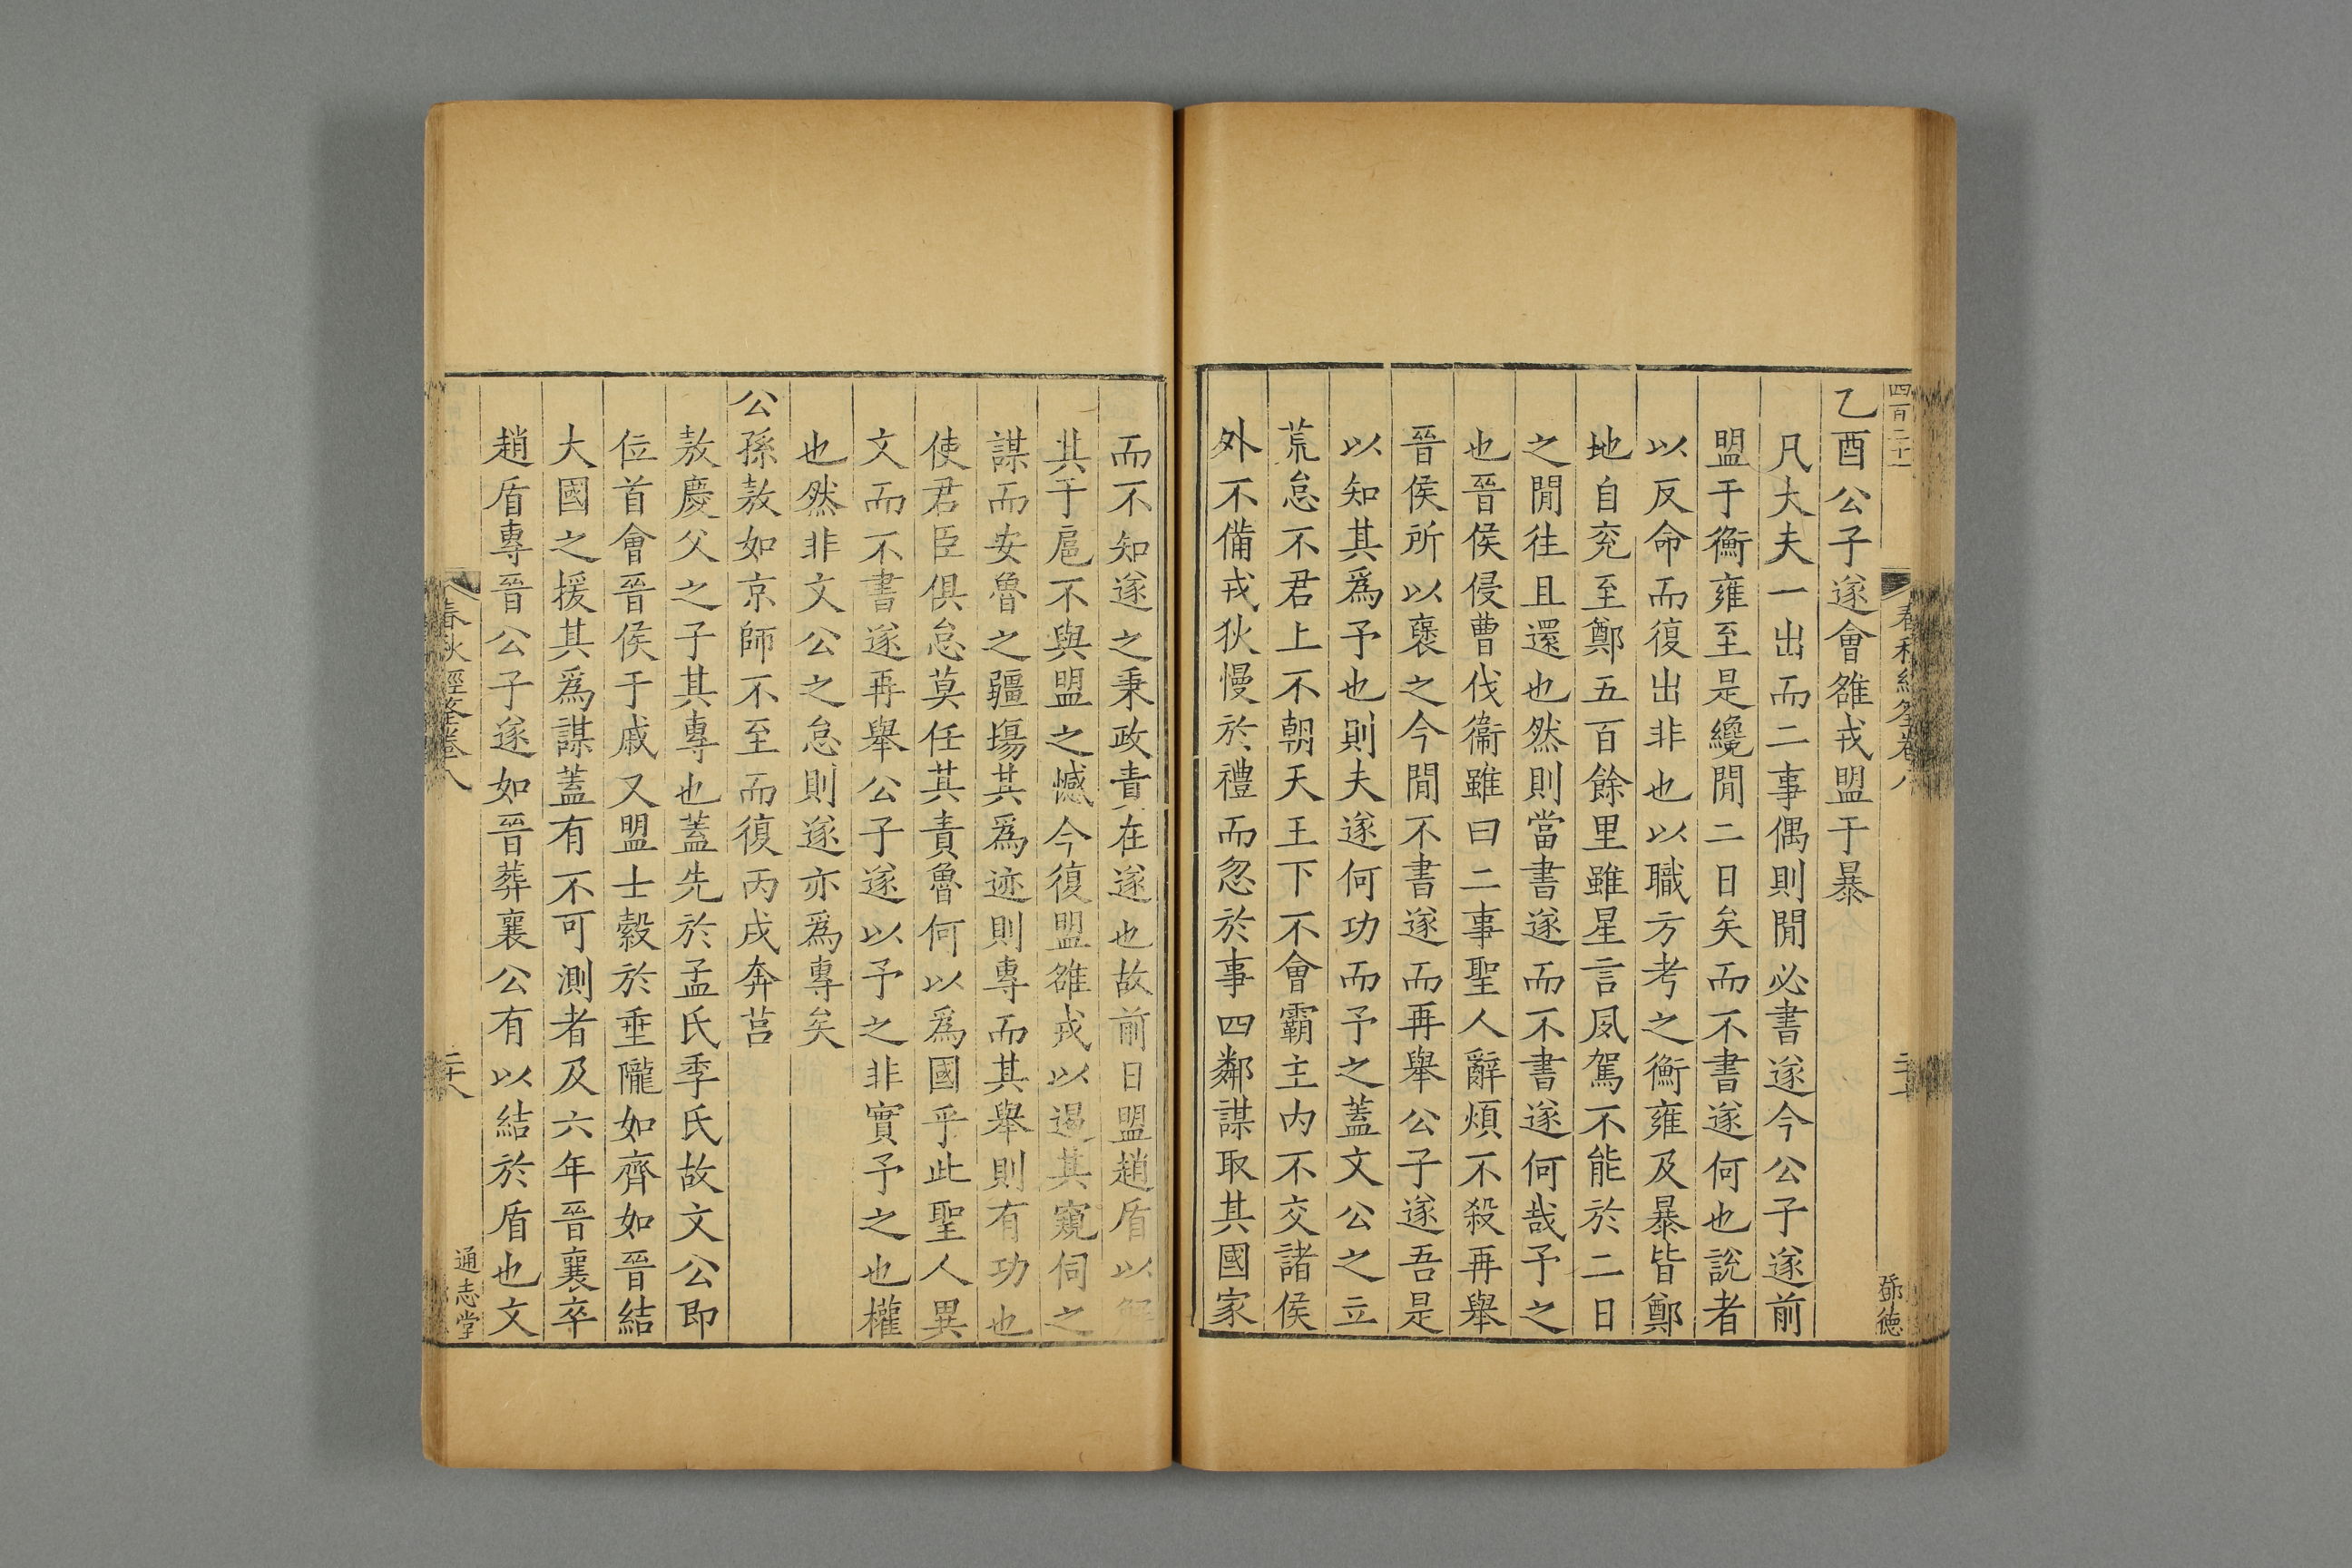 四百二十一
春秋經筌卷八
鄧德
乙酉公子遂會雒戎盟于暴
凡大夫一出而二事偶則閒必書遂今公子遂前
盟于衡雍至是纔閒二日矣而不書遂何也說者
以反命而復出非也以職方考之衡雍及暴皆鄭
地自兖至鄭五百餘里雖星言夙駕不能於二日
之閒往且還也然則當書遂而不書遂何哉予之
也晉侯侵曹伐衞雖曰二事聖人辭煩不殺再舉
晉侯所以褒之今閒不書遂而再舉公子遂吾是
以知其爲予也則夫遂何功而予之蓋文公之立
荒怠不君上不朝天王下不會霸主内不交諸侯
外不備戎狄慢於禮而忽於事四鄰謀取其國家
而不知遂之秉政責在遂也故前日盟趙盾以解
其于扈不與盟之憾今復盟雒戎以遏其窺伺之
謀而安魯之疆埸其爲迹則專而其舉則有功也
使君臣俱怠莫任其責魯何以爲國乎此聖人異
文而不書遂再舉公子遂以予之非實予之也權
也然非文公之怠則遂亦爲專矣
公孫敖如京師不至而復丙戌奔莒
敖慶父之子其專也蓋先於孟氏季氏故文公即
位首會晉侯于戚又盟士縠於垂隴如齊如晉結
大國之援其爲謀蓋有不可測者及六年晉襄卒
趙盾專晉公子遂如晉葬襄公有以結於盾也文
春秋經筌卷八
二十八
通志堂